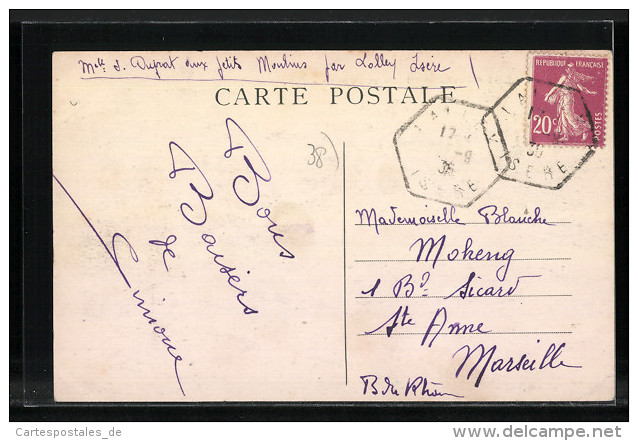 Melle S. Duprat aux petits Moulins par Lalley Isère
CARTE POSTALE
REPUBLIQUE FRANÇAISE
20c
POSTES
38
ISERE
ISERE
Bons
Baisers
de
Simone
Mademoiselle Blanche
Mokeng
1 Bd Sicard
Ste Anne
Marseille
B du Rhône
© Cartespostales_de
delcampe.net